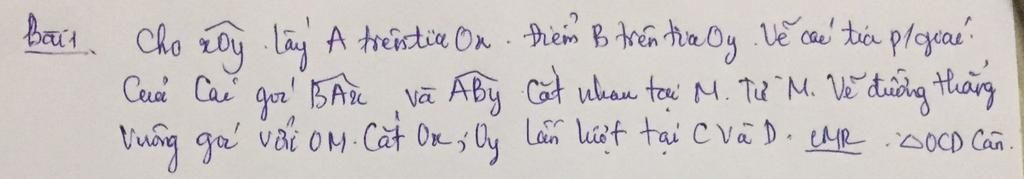 Bài 1. Cho xOy . Lấy A trên tia Ox . Điểm B trên tia Oy . Vẽ các tia p/giác
Của các góc BAx và ABy cắt nhau tại M. Từ M. Vẽ đường thẳng
vuông góc với OM. Cắt Ox ; Oy lần lượt tại C và D. CMR . △OCD Cân.